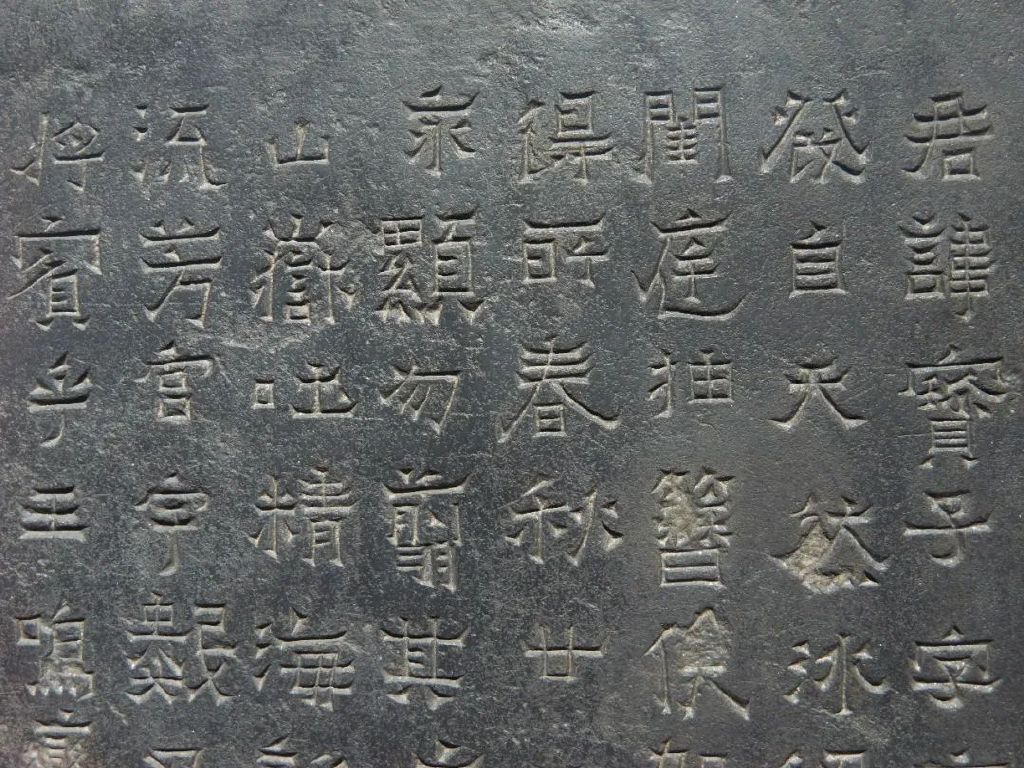 君諱寶子字
發自天然冰
閨庭抽簪俟
得所春秋廿
永顯勿翦其
山嶽吐精海
流芳宮宇數
將賓乎王鳴